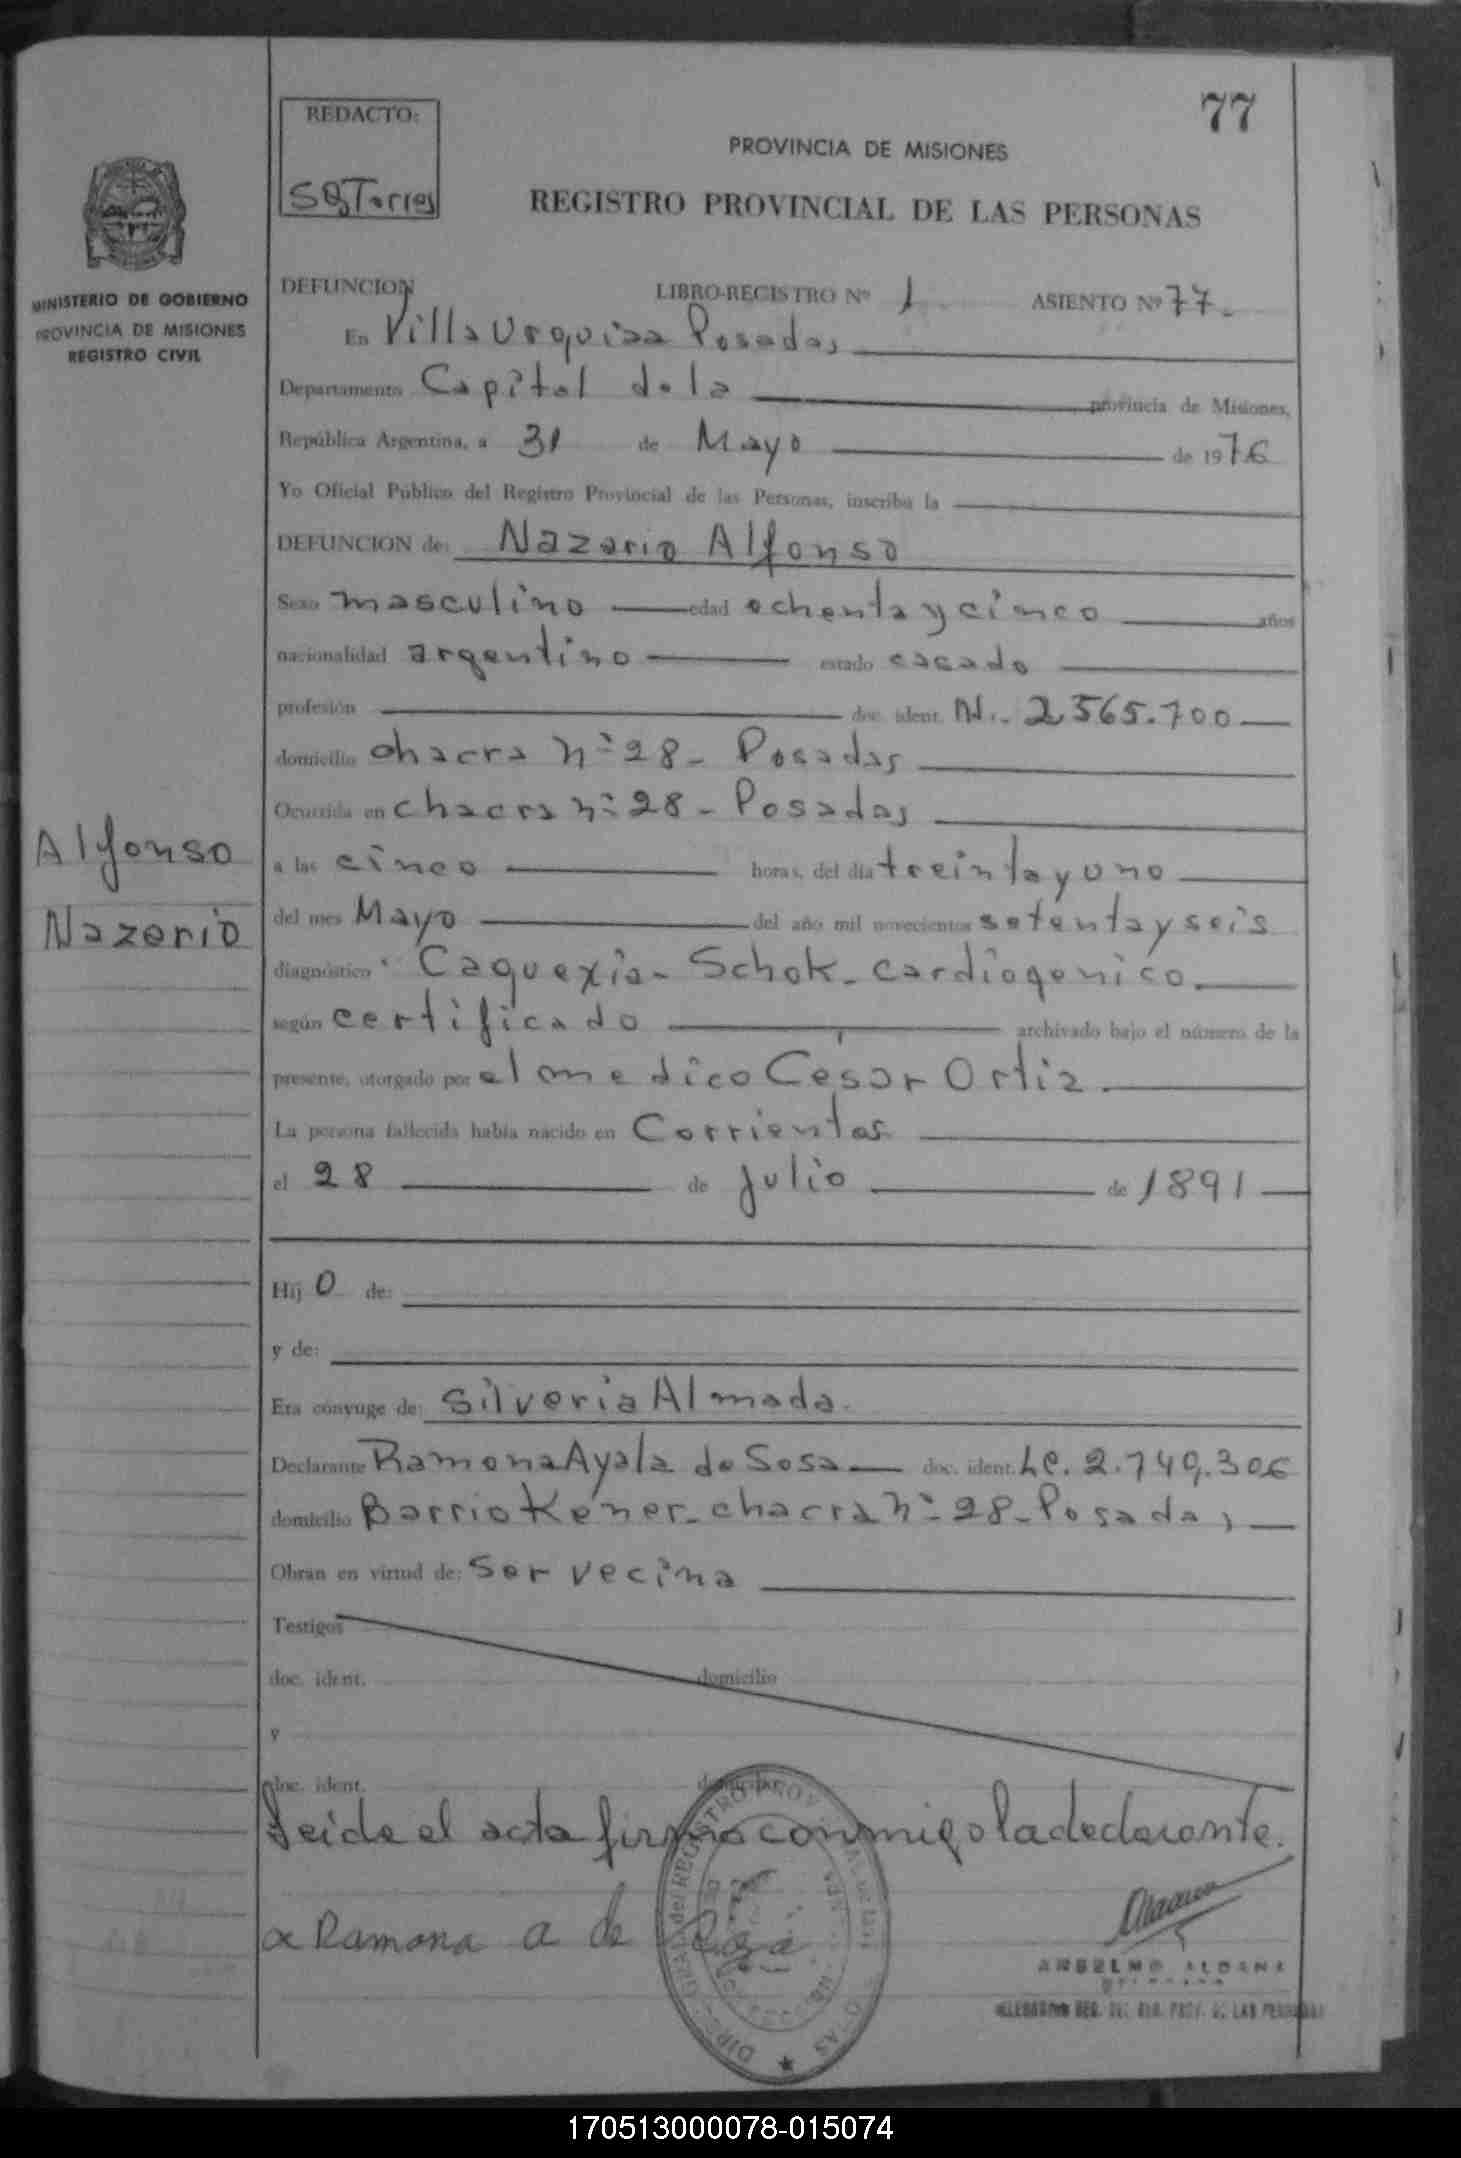 77
REDACTO:
PROVINCIA DE MISIONES
REGISTRO PROVINCIAL DE LAS PERSONAS
MINISTERIO DE GOBIERNO
PROVINCIA DE MISIONES
REGISTRO CIVIL
DEFUNCION LIBRO-REGISTRO Nº 1 ASIENTO Nº 77.
En Villa Urquiza Posadas
Departamento Capital de la provincia de Misiones,
República Argentina, a 31 de Mayo de 1976
Yo Oficial Público del Registro Provincial de las Personas, inscribo la
DEFUNCION de: Nazario Alfonso
Sexo masculino edad ochenta y cinco años
nacionalidad argentino estado casado
profesión doc. ident. N.. 2.565.700
domicilio chacra nº 28 - Posadas
Ocurrida en chacra nº 28 - Posadas
Alfonso
Nazario
a las cinco horas, del día treinta y uno
del mes Mayo del año mil novecientos setenta y seis
diagnóstico Caquexia - Schok - cardiogenico.
según certificado archivado bajo el número de la
presente, otorgado por el medico César Ortiz.
La persona fallecida había nacido en Corrientes
el 28 de julio de 1891
Hij o de:
y de:
Era cónyuge de: Silveria Almada.
Declarante Ramona Ayala de Sosa doc. ident. Lc. 2.740.306
domicilio Barrio Kener - chacra nº 28 - Posadas
Obran en virtud de: Ser vecina
Testigos
doc. ident. domicilio
y
doc. ident. domicilio
Leida el acta firma conmigo la declarante.
Ramona a de Sosa
ANSELMO ALDANA
170513000078-015074